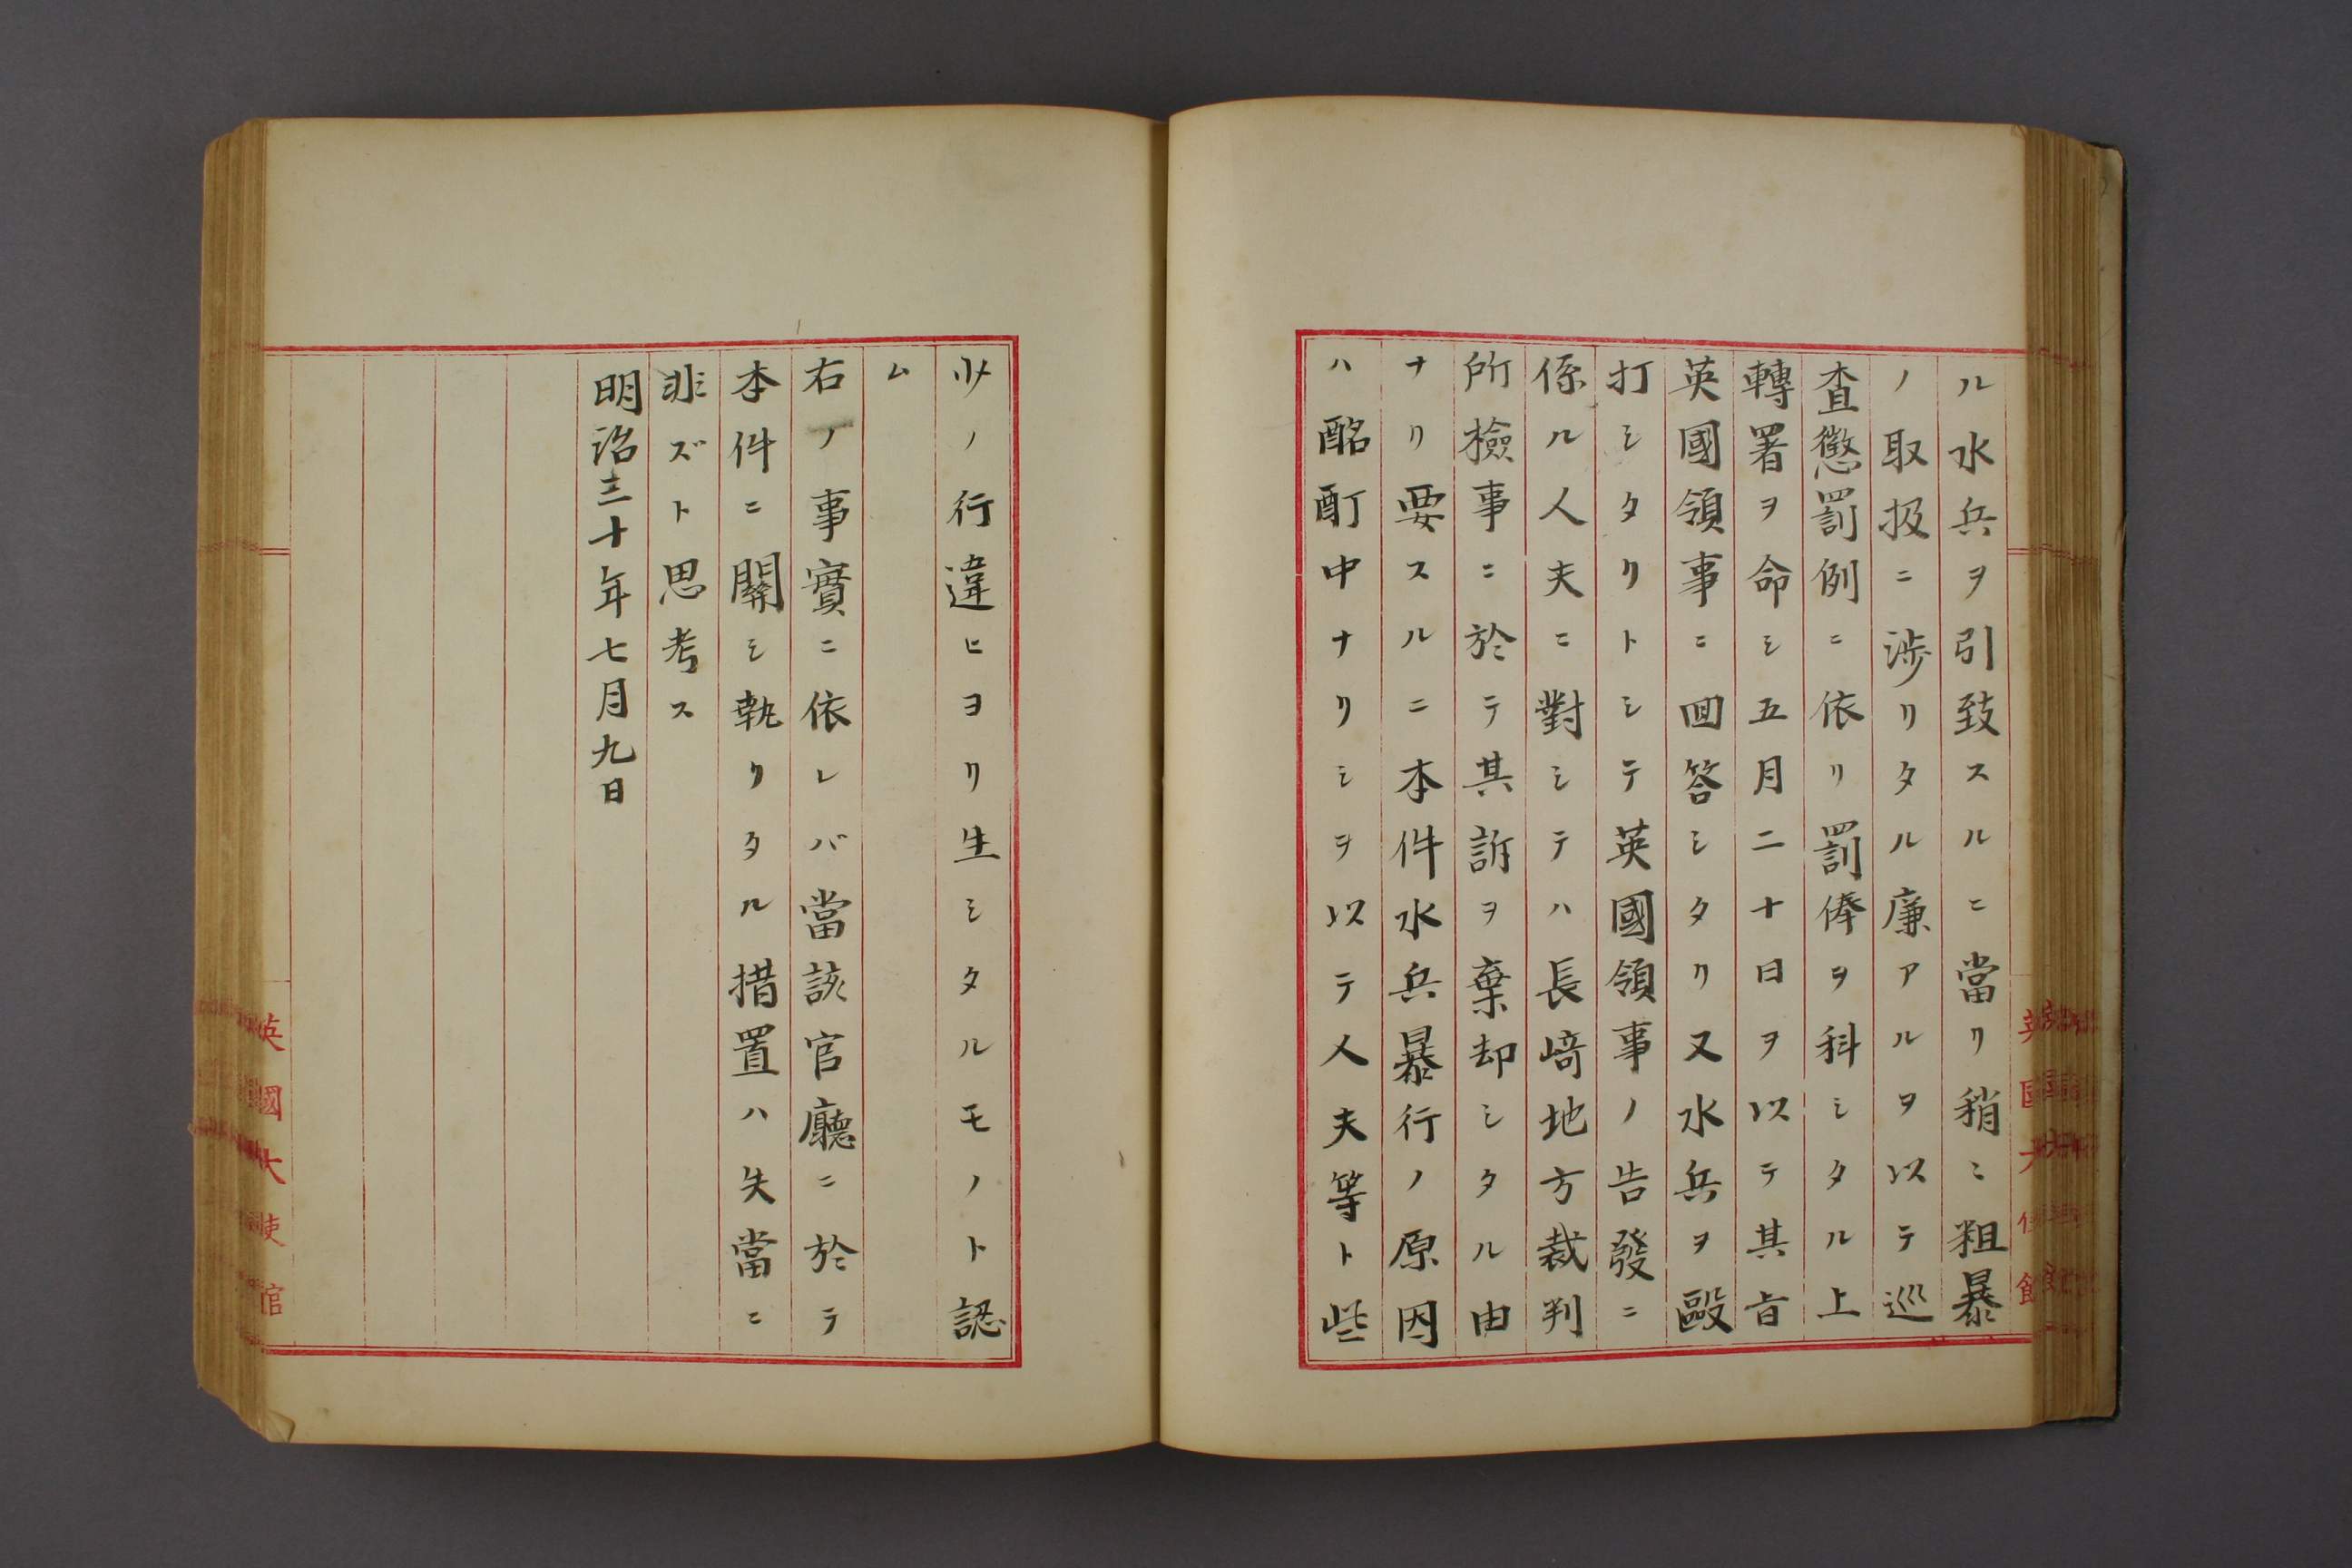 ル水兵ヲ引致スルニ當リ稍ミ粗暴
ノ取扱ニ渉リタル廉アルヲ以テ巡
査懲罰例ニ依リ罰俸ヲ科シタル上
轉署ヲ命シ五月二十日ヲ以テ其旨
英國領事ニ回答シタリ又水兵ヲ毆
打シタリトシテ英國領事ノ告發ニ
係ル人夫ニ對シテハ長﨑地方裁判
所檢事ニ於テ其訴ヲ棄却シタル由
ナリ要スルニ本件水兵暴行ノ原因
ハ酩酊中ナリシヲ以テ人夫等ト些
少ノ行違ヒヨリ生シタルモノト認
ム
右ノ事實ニ依レバ當該官廳ニ於テ
本件ニ關シ執リタル措置ハ失當ニ
非ズト思考ス
明治三十年七月九日
英國大使館